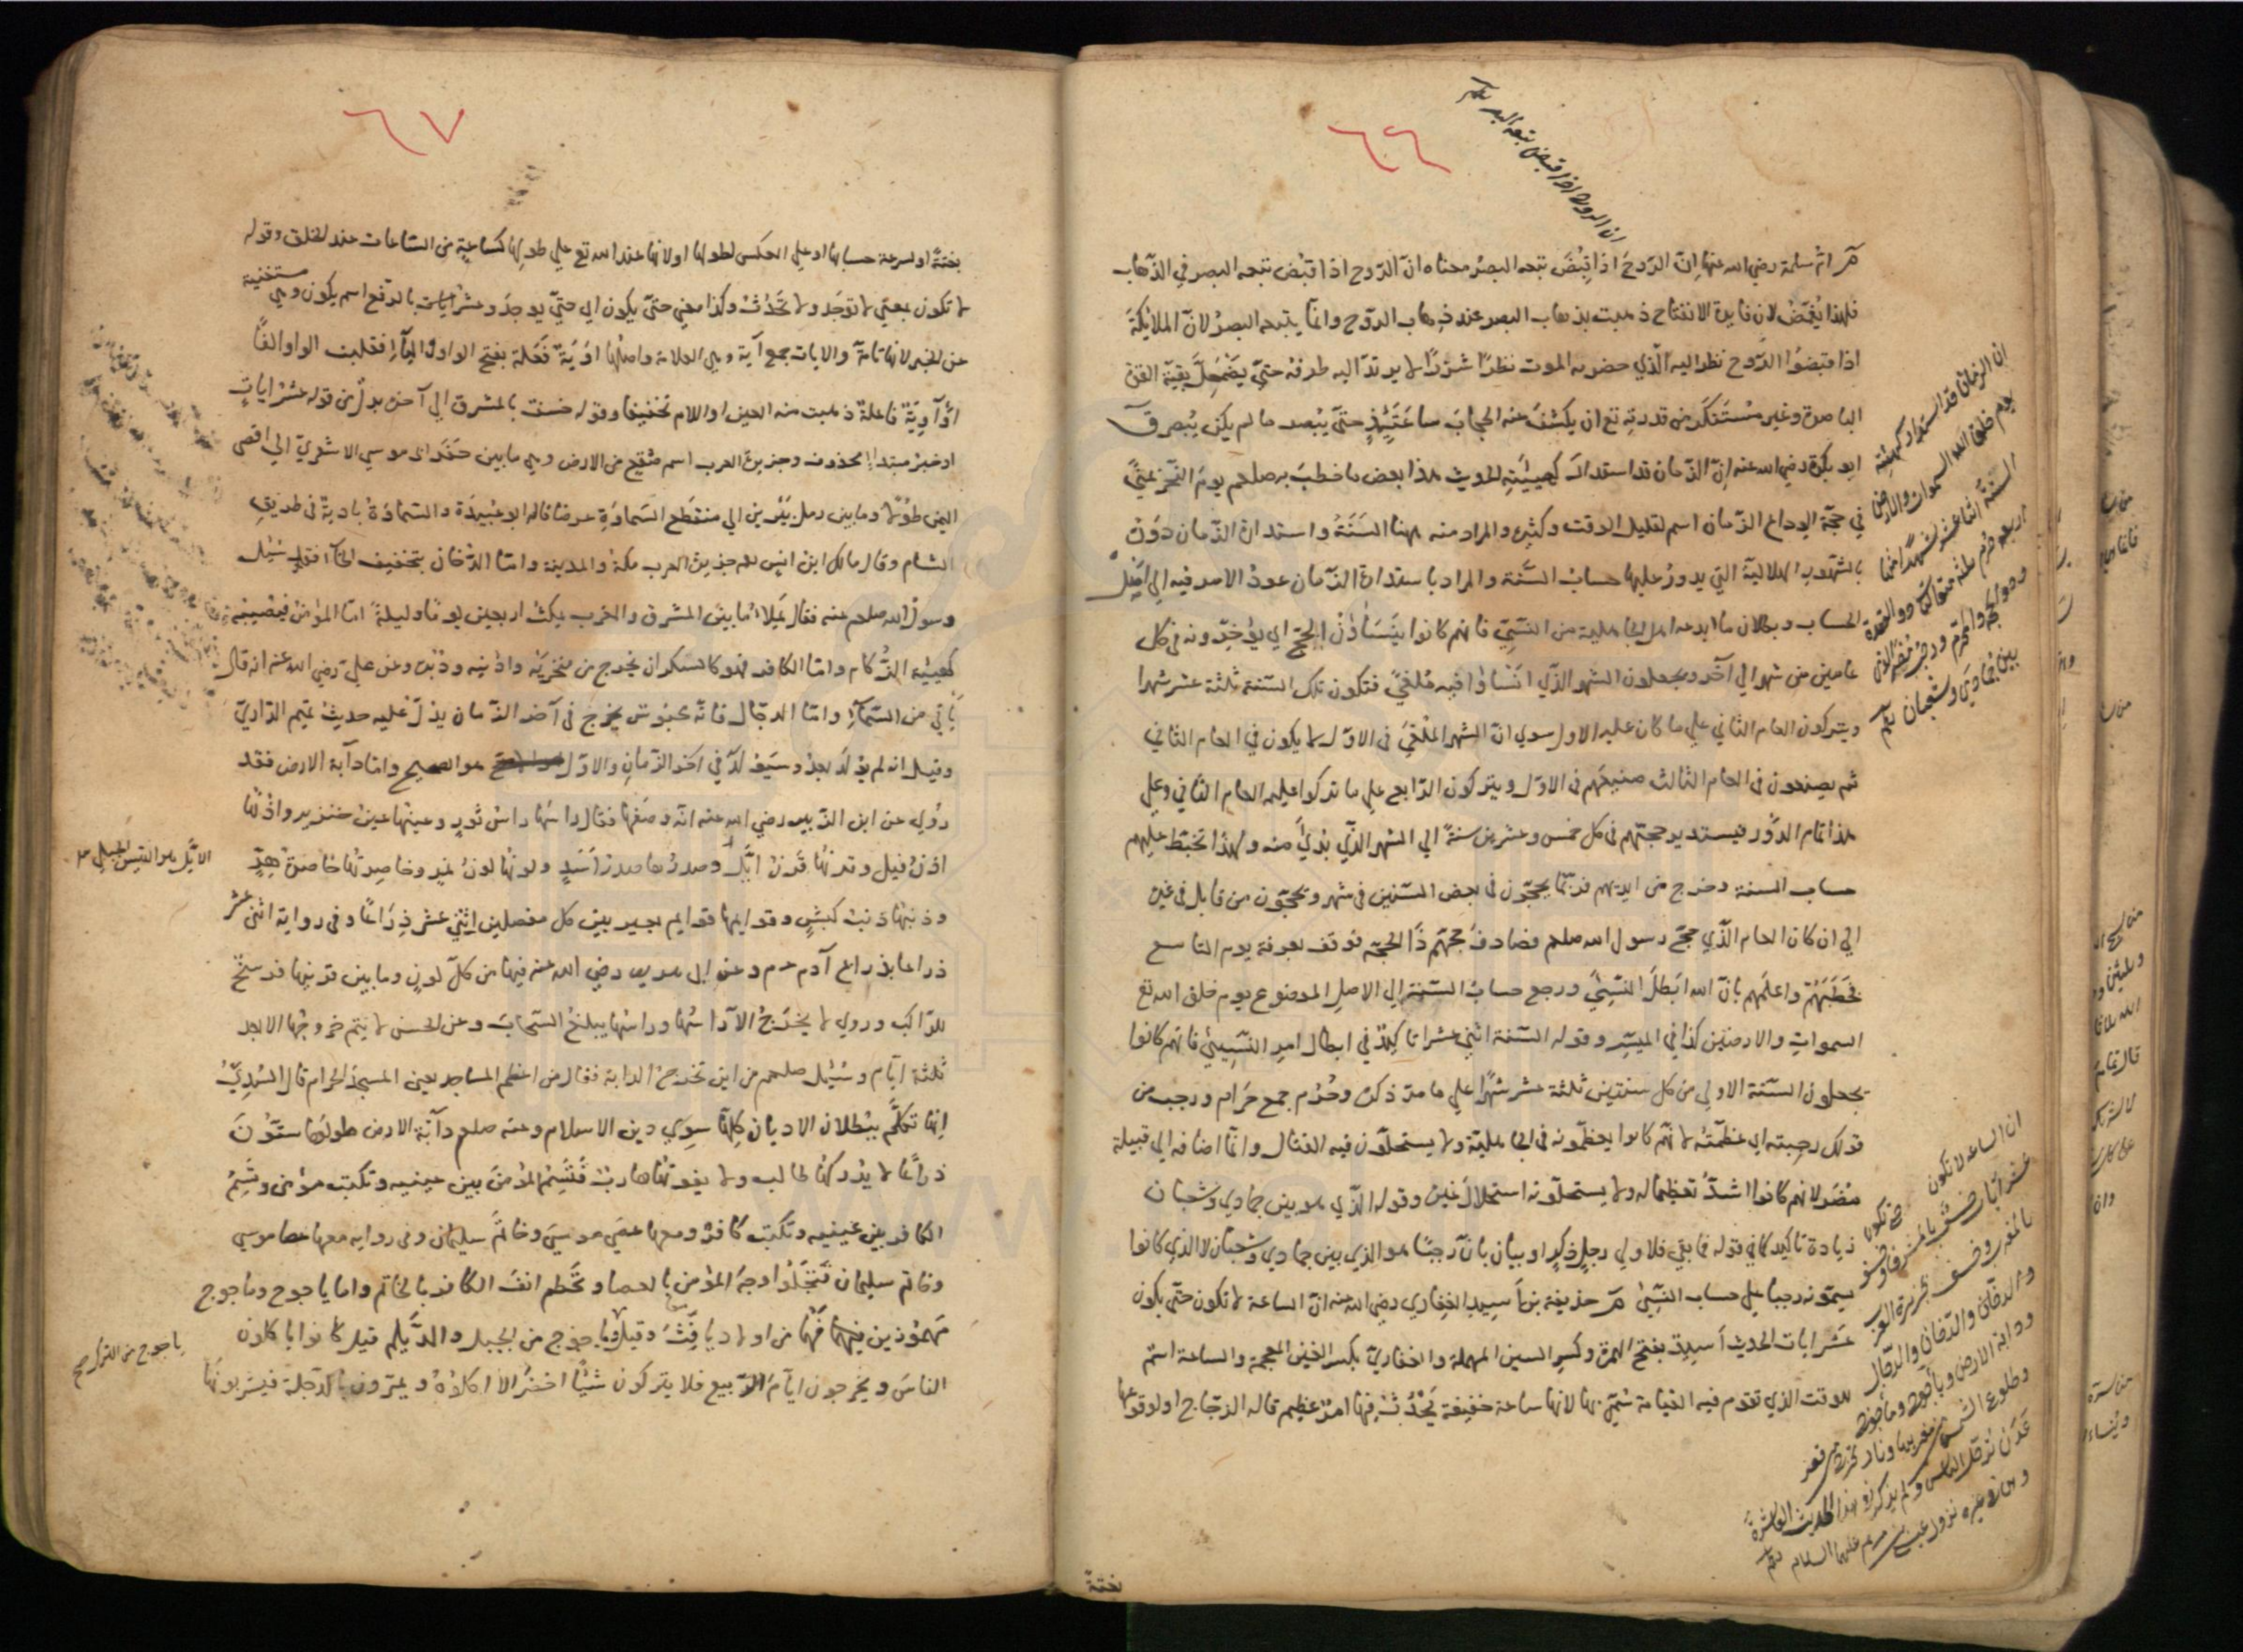 ٦٦
ان الروح اذا قبض تبعه البصر
م ام سلمة رضي الله عنها ان الروح اذا قبض تبعه البصر معناه ان الروح اذا قبض تبعه البصر في الذهاب
فلهذا يغمض لان فايدة الانفتاح ذهبت بذهاب البصر عند ذهاب الروح وانما يتبعه البصر لان الملائكة
اذا قبضوا الروح نظر اليه الذي حضره الموت نظرا شزرا لا يرتد اليه طرفه حتي يضمحل بقية القوة
الباصرة وغير مستنكر من قدرته تع ان يكشف عنه الحجاب ساعتئذ حتي يبصر ما لم يكن يبصر ق
ابو بكرة رضي الله عنه ان الزمان قد استدار كهيئته الحديث هذا بعض ما خطب به صلعم يوم النحر بمني
في حجة الوداع الزمان اسم لقليل الوقت وكثيره والمراد منه ههنا السنة واستدارة الزمان دورة
بالشهور الهلالية التي يدور عليها حساب السنة والمراد باستدارة الزمان عود الامر فيه الي اصل
الحساب وبطلان ما ابدعه اهل الجاهلية من النسئ فانهم كانوا ينسأون الحج اي يؤخرونه في كل
عامين من شهر الي آخر ويجعلون الشهر الذي انسأوا فيه ملغي فتكون تلك السنة ثلثة عشر شهرا
ويتركون العام الثاني علي ما كان عليه الاول سوي ان الشهر الملغي في الاول لا يكون في العام الثاني
ثم يصنعون في العام الثالث صنيعهم في الاول ويتركون الرابع علي ما تركوا عليه العام الثاني وعلي
هذا تمام الدور فيستدير حجتهم في كل خمس وعشرين سنة الي الشهر الذي بدئ منه ولهذا تخبط عليهم
حساب السنة وخرج من ايديهم فربما يحجون في بعض السنين في شهر ويحجون من قابل في غيره
الي ان كان العام الذي حج رسول الله صلعم فصادف حجهم ذا الحجة فوقف بعرفة يوم التاسع
فخطبهم واعلمهم بان الله ابطل النسئ ورجع حساب السنة الي الاصل الموضوع يوم خلق الله تع
السموات والارضين كذا في الميسر وقوله السنة اثني عشر تاكيد في ابطال امر النسئ فانهم كانوا
يجعلون السنة الاولي من كل سنتين ثلثة عشر شهرا علي ما مر ذكره وحرم جمع حرام ورجب من
قولك رجبته اي عظمته لانهم كانوا يعظمونه في الجاهلية ولا يستحلون فيه القتال وانما اضافه الي قبيلة
مضر لانهم كانوا اشد تعظيما له ولا يستحلونه استحلال غيره وقوله الذي هو بين جمادي وشعبان
زيادة تاكيد كما في قوله فما بقي فلاولي رجل ذكر او بيان بان رجبا هو الذي بين جمادي وشعبان لا الذي كانوا
يسمونه رجبا علي حساب النسئ م حذيفة بن اسيد الغفاري رضي الله عنه ان الساعة لا تكون حتي يكون
عشر ايات الحديث اسيد بفتح الهمزة وكسر السين المهملة والغفاري بكسر الغين المعجمة والساعة اسم
للوقت الذي تقوم فيه القيامة سمي بها لانها ساعة خفيفة يحدث فيها امر عظيم قاله الزجاج او لوقوعها
بغتة
ان الزمان قد استدار كهيئته
يوم خلق الله السموات والارض
السنة اثنا عشر شهرا منها
اربعة حرم ثلثة متواليات ذو القعدة
وذو الحجة والمحرم ورجب مضر الذي
بين جمادي وشعبان
ان الساعة لا تكون حتي تكون
عشر ايات خسف بالمشرق وخسف
بالمغرب وخسف بجزيرة العرب
والدخان والدجال
ودابة الارض وياجوج وماجوج
وطلوع الشمس من مغربها ونار تخرج من قعر
عدن ترحل الناس ولم يذكر في هذا الحديث العاشرة
وهي في غيره نزول عيسي بن مريم عليهما السلام
٦٧
بغتة او لسرعة حسابها او علي العكس لطولها او لانها عند الله تع علي طولها كساعة من الساعات عند الخلق وقوله
لا تكون بمعني لا توجد ولا تحدث وكذا معني حتي يكون اي حتي يوجد وعشر ايات بالرفع اسم يكون وهي مستغنية
عن الخبر لانها تامة والايات جمع آية وهي العلامة واصلها اوية فعلة بفتح الواو فقلبت الواو الفا
او آوية فاعلة ذهبت منه العين او اللام تخفيفا وقوله خسف بالمشرق الي آخره بدل من قوله عشر ايات
او خبر مبتدا محذوف وجزيرة العرب اسم صقع من الارض وهي ما بين حفر ابي موسي الاشعري الي اقصي
اليمن طولا وما بين رمل يبرين الي منقطع السماوة عرضا قاله ابو عبيدة والسماوة بادية في طريق
الشام وقال مالك ابن انس هو جزيرة العرب مكة والمدينة واما الدخان بتخفيف الخاء فقد سئل
رسول الله صلعم عنه فقال يملأ ما بين المشرق والمغرب يمكث اربعين يوما وليلة اما المؤمن فيصيبه
كهيئة الزكام واما الكافر فهو كالسكران يخرج من منخريه واذنيه ودبره وعن علي رضي الله عنه انه قال
يأتي من السماء واما الدجال فانه محبوس يخرج في آخر الزمان يدل عليه حديث تميم الداري
وقيل انه لم يولد بعد وسيولد في آخر الزمان والاول هو الصحيح واما دابة الارض فقد
روي عن ابن الزبير رضي الله عنه انه وصفها فقال راسها راس ثور وعينها عين خنزير واذنها
اذن فيل وقرنها قرن ايل وصدرها صدر اسد ولونها لون نمر وخاصرتها خاصرة هر
وذنبها ذنب كبش وقوايمها قوايم بعير بين كل مفصلين اثني عشر ذراعا وفي رواية اثني عشر
ذراعا بذراع آدم عم وعن ابي هريرة رضي الله عنه فيها من كل لون وما بين قرنيها فرسخ
للراكب وروي لا يخرج الا راسها وراسها يبلغ السحاب وعن الحسن لا يتم خروجها الا بعد
ثلثة ايام وسئل صلعم من اين تخرج الدابة فقال من اعظم المساجد يعني المسجد الحرام قال السدي
انها تكلم ببطلان الاديان كلها سوي دين الاسلام وعنه صلعم دابة الارض طولها ستون
ذراعا لا يدركها طالب ولا يفوتها هارب فتسم المؤمن بين عينيه وتكتب مؤمن وتسم
الكافر بين عينيه وتكتب كافر ومعها عصي موسي وخاتم سليمان وفي رواية معها عصا موسي
وخاتم سليمان فتجلو وجه المؤمن بالعصا وتخطم انف الكافر بالخاتم واما ياجوج وماجوج
مهموزين فهما من اولاد يافث وقيل ماجوج من الجيل والديلم قيل كانوا ياكلون
الناس ويخرجون ايام الربيع فلا يتركون شيئا اخضر الا اكلوه ويمرون بالدجلة فيشربونها
الايل هو التيس الجبلي
ياجوج من الترك صح